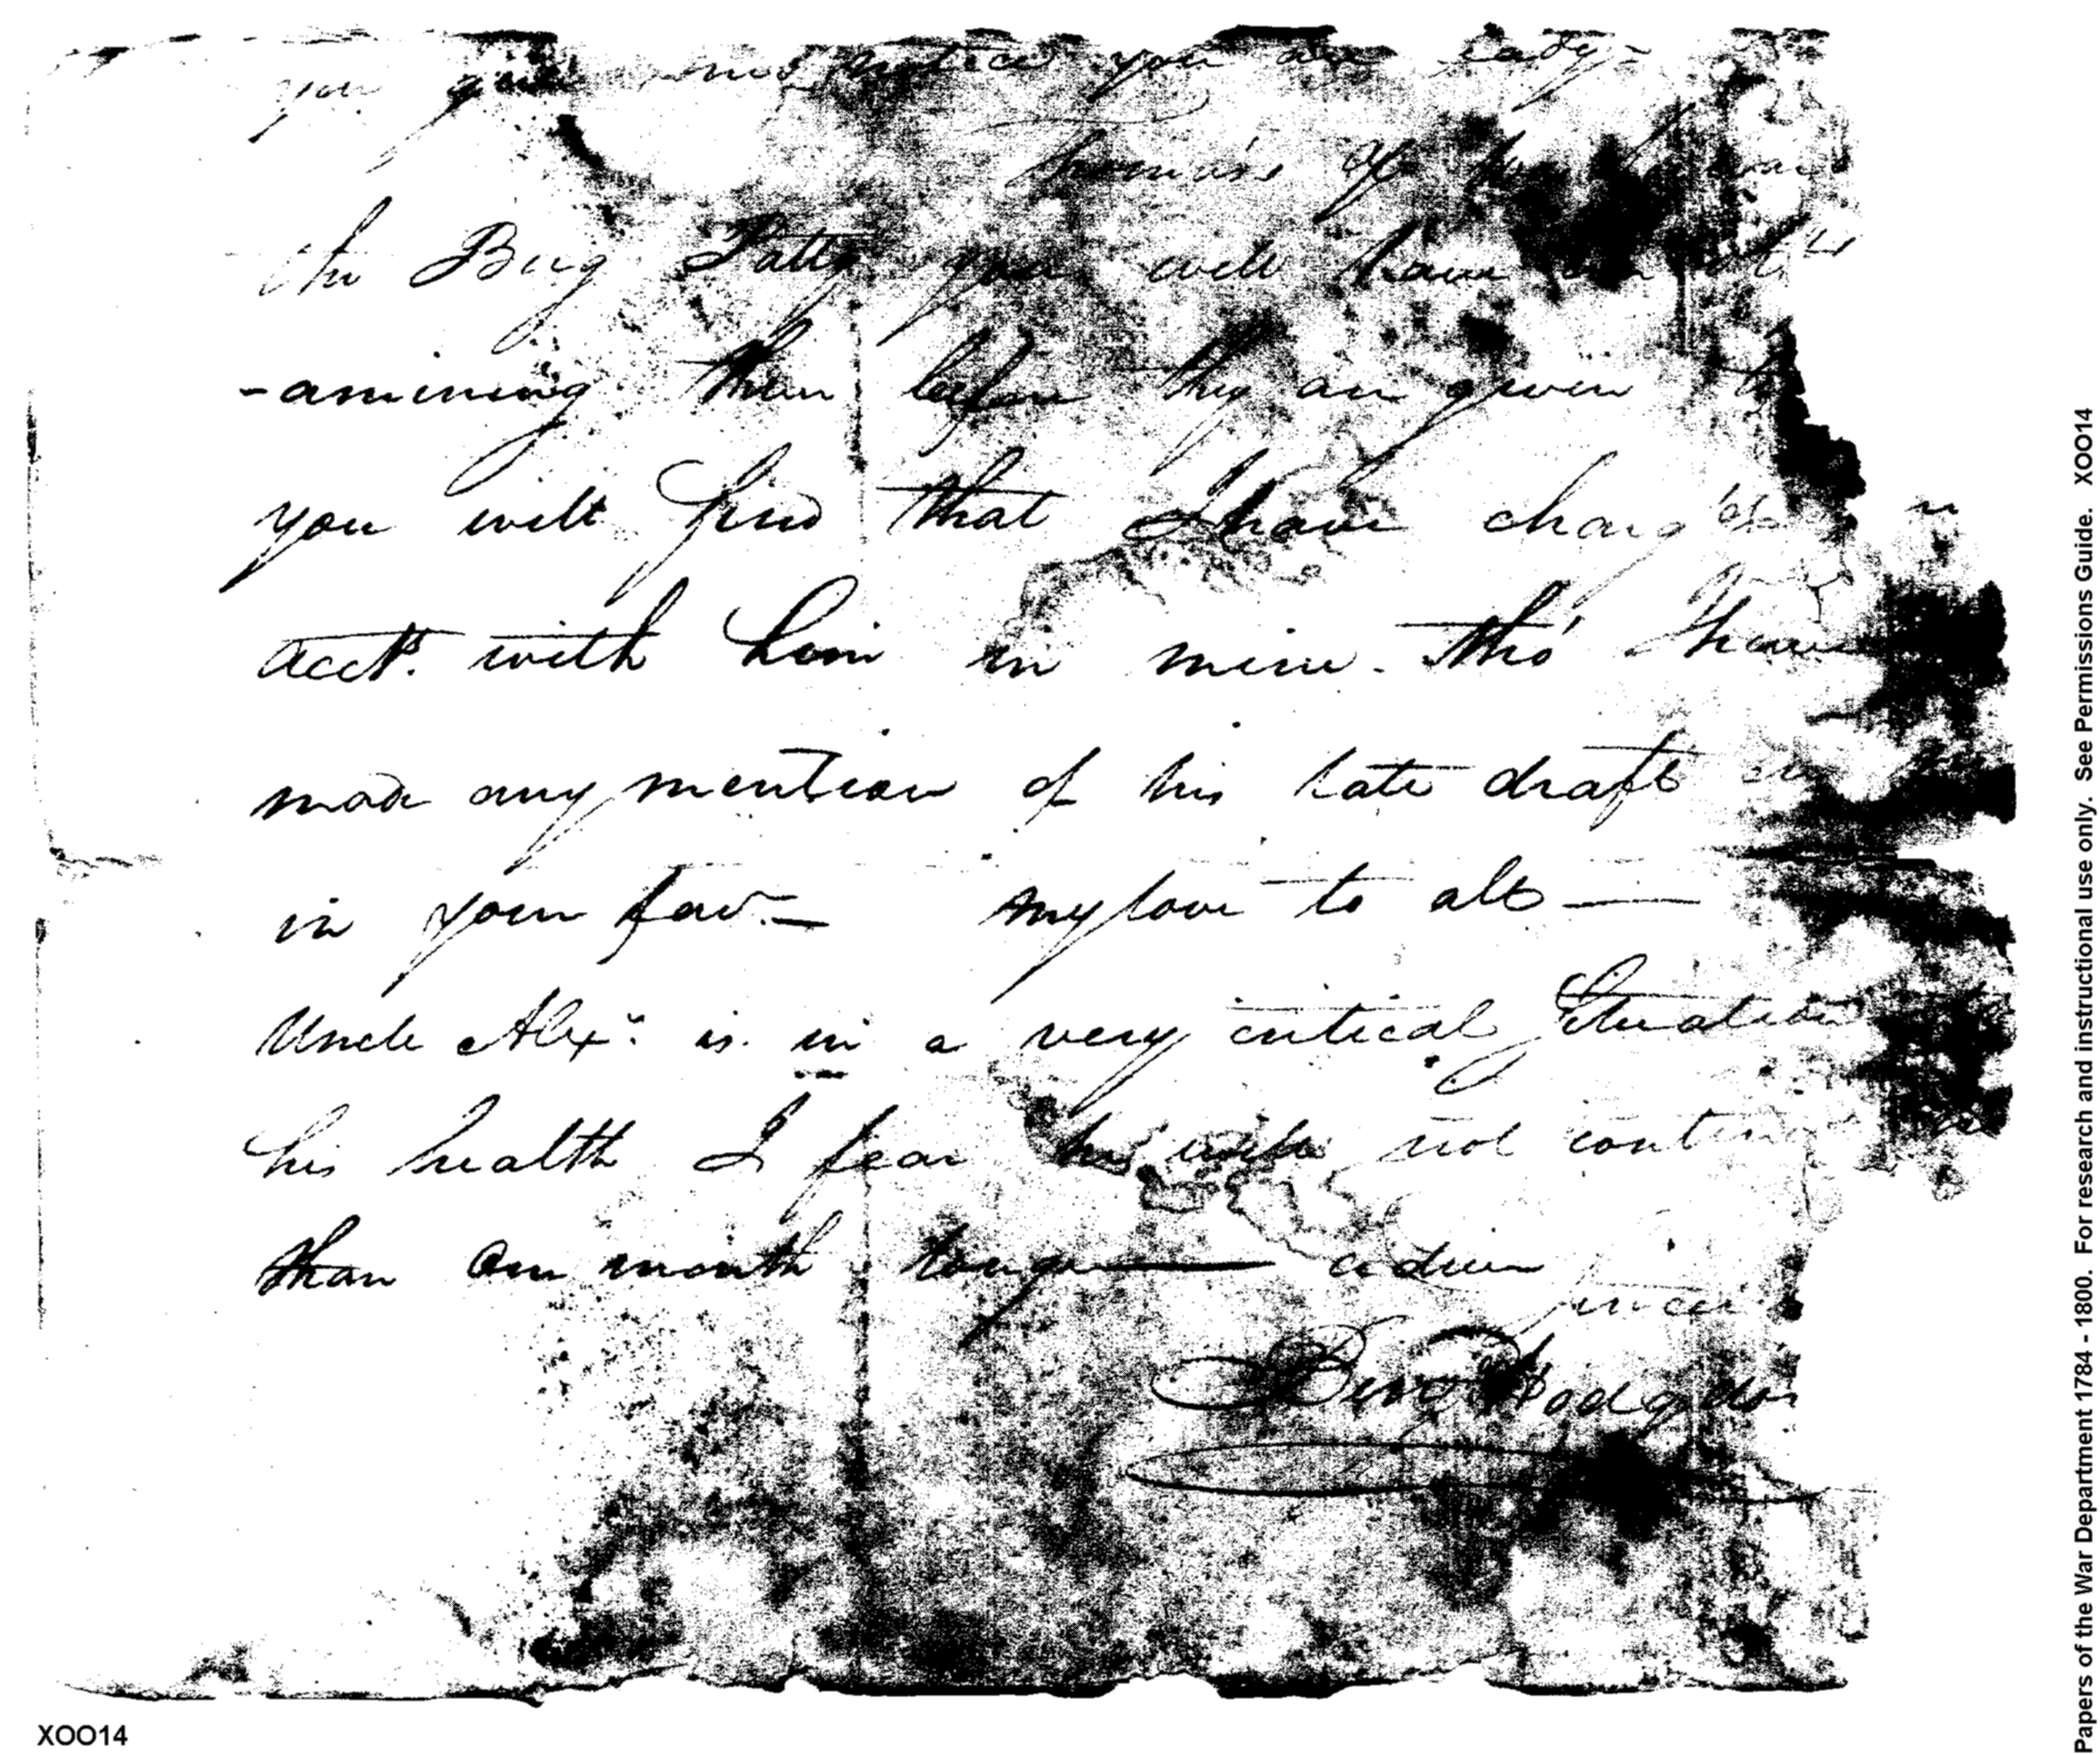 you give me notice you are ready-
of
the Brig Patty you will have
-amining them before they are given
you will find that I have charg'd
acct. with him in mine. tho' I have
made any mention of his late draft
in your fav.— my love to all —
Uncle Alexr. is in a very critical Situation
his health I fear he will not
than one month longer — adieu
Benj Hodgdon
XOO14
Papers of the War Department 1784 - 1800. For research and instructional use only. See Permissions Guide. XOO14